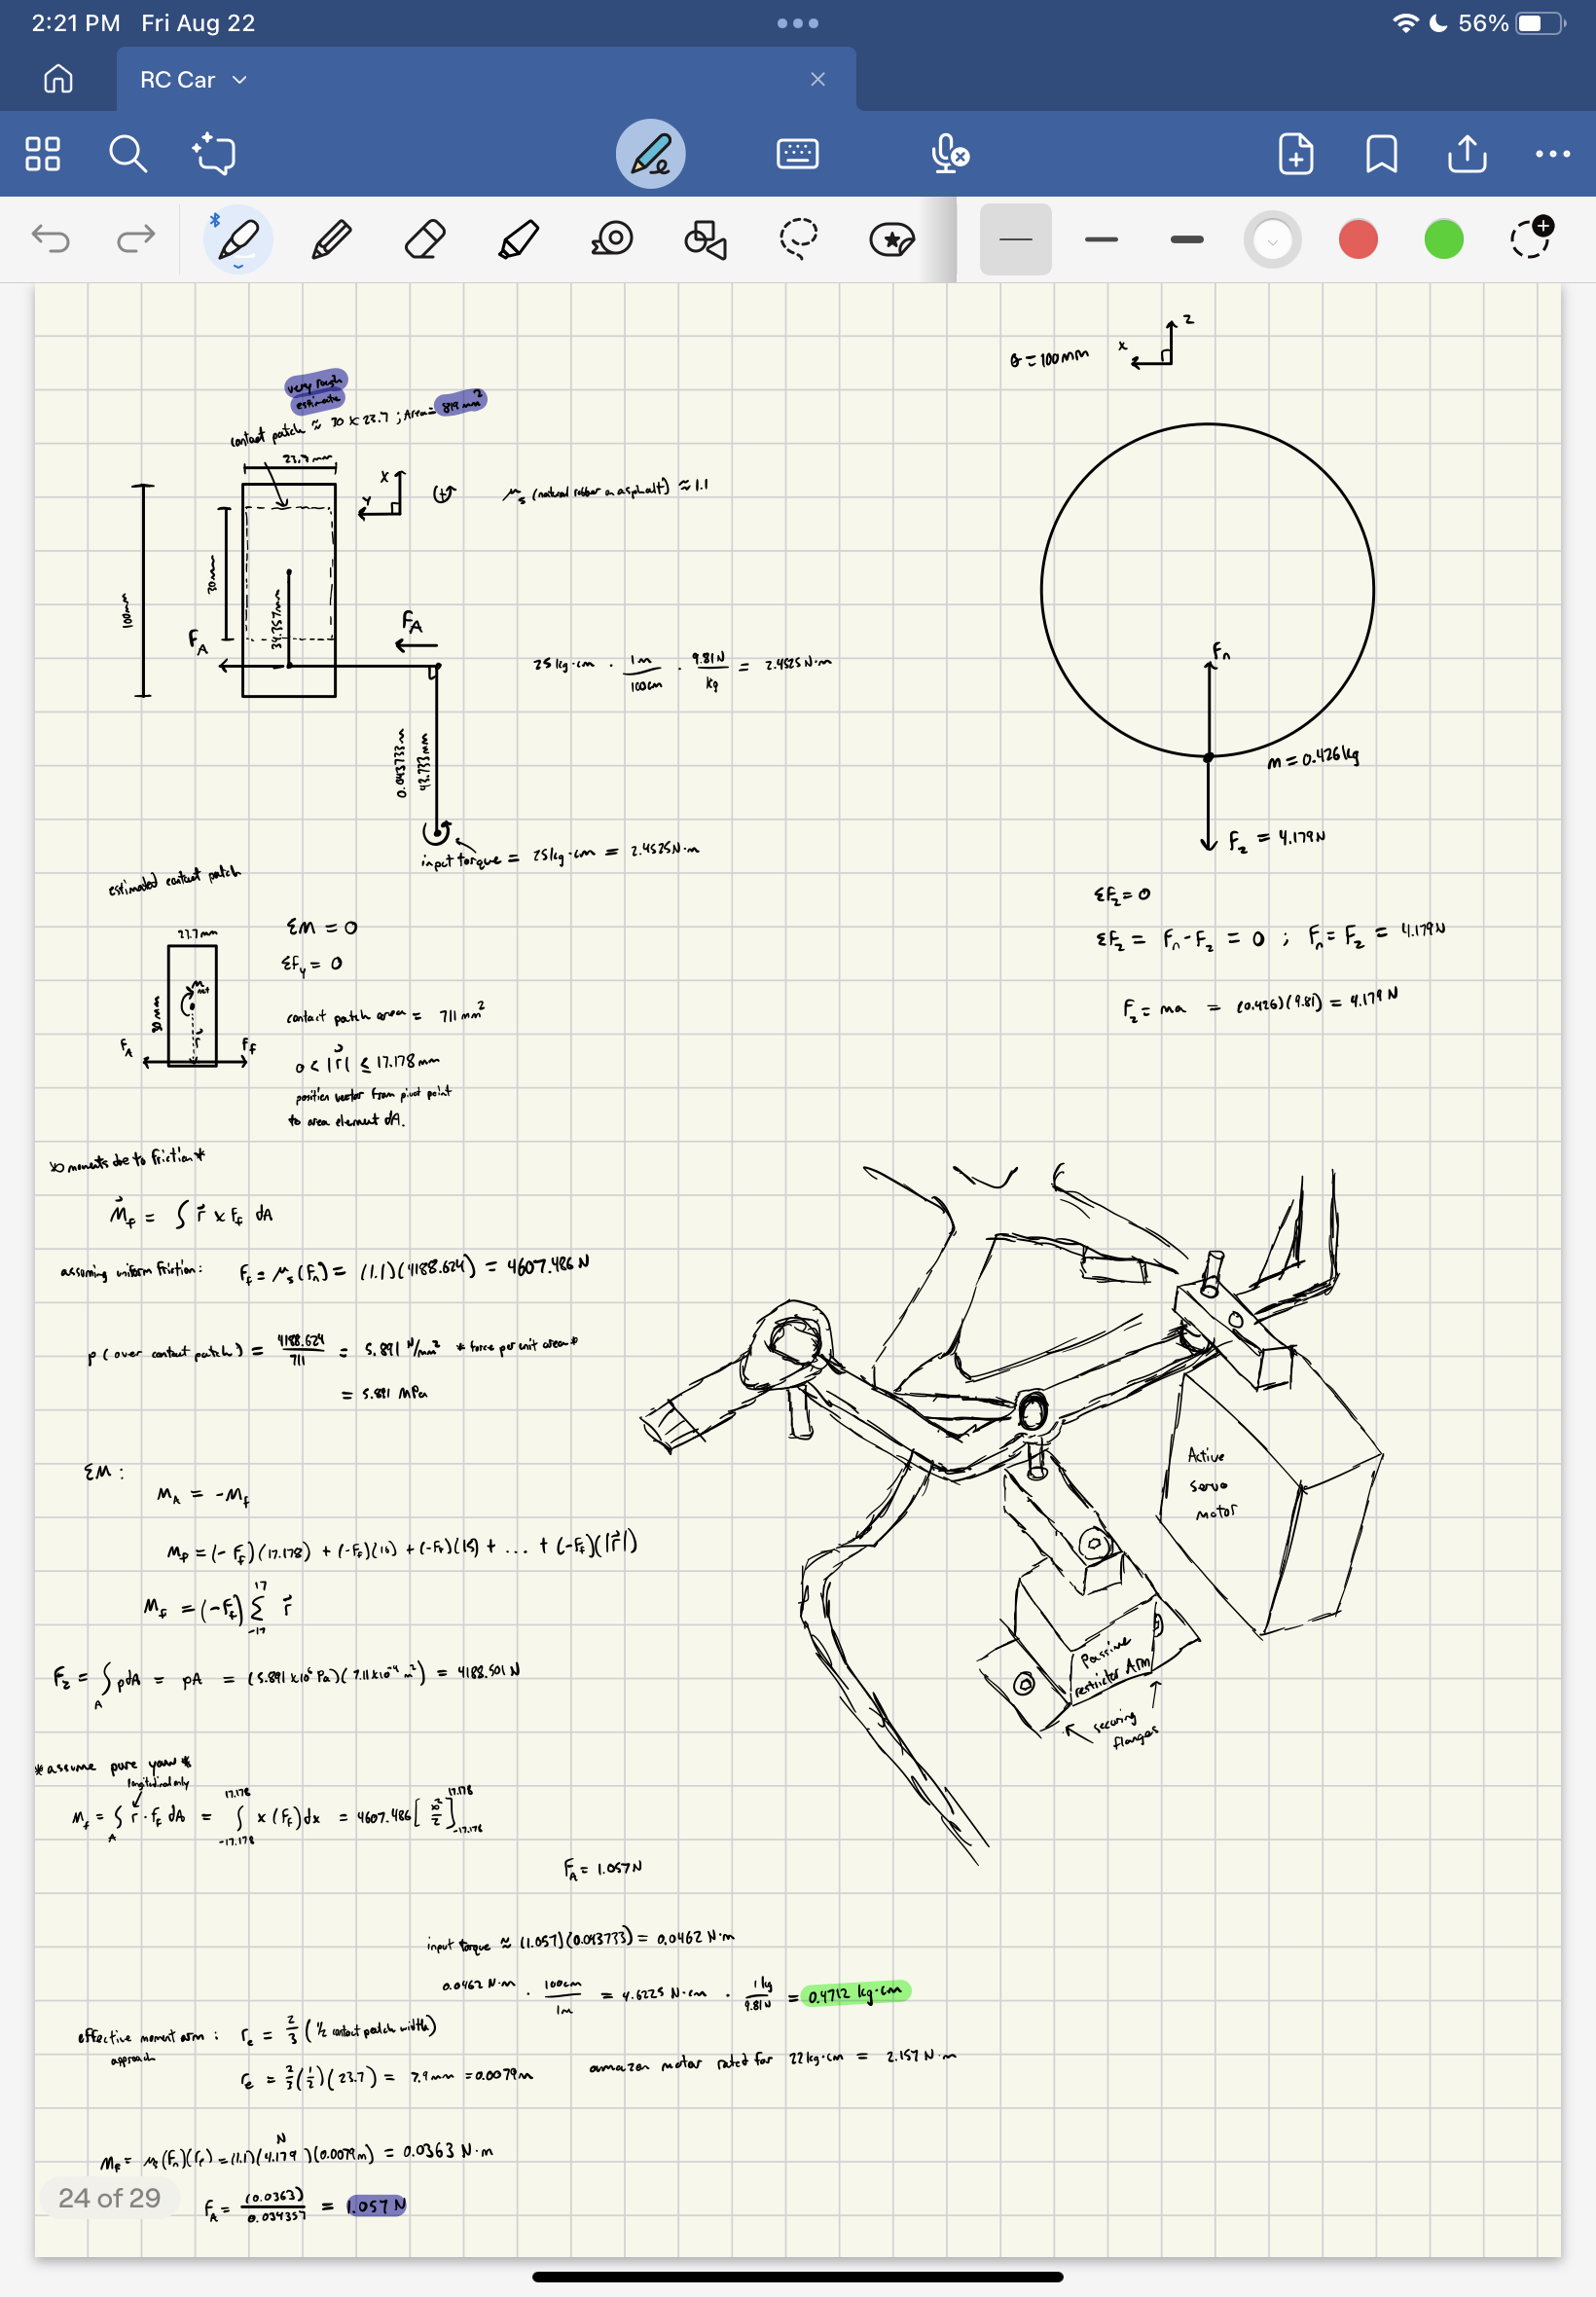 2:21 PM Fri Aug 22
56%
RC Car
θ = 100mm
z
x
very rough
estimate
contact patch ≈ 30 x 23.7 ; Area = 819 mm²
23.7 mm
x
y
μs (natural rubber on asphalt) ≈ 1.1
100mm
30mm
34.357mm
FA
FA
25 kg·cm · 1m/100cm · 9.81N/kg = 2.4525 N·m
0.043733 m
43.733mm
input torque = 25kg·cm = 2.4525N·m
Fn
m = 0.426kg
Fz = 4.179N
ΣFz = 0
ΣFz = Fn - Fz = 0 ; Fn = Fz = 4.179N
Fz = ma = (0.426)(9.81) = 4.179 N
estimated contact patch
23.7mm
30mm
FA
Ff
r
ΣM = 0
ΣFy = 0
contact patch area = 711 mm²
0 < |r| ≤ 17.178mm
position vector from pivot point
to area element dA.
moments due to friction*
Mf = ∫ r x Ff dA
assuming uniform friction: Ff = μs (Fn) = (1.1)(4188.624) = 4607.486 N
p (over contact patch) = 4188.624/711 = 5.891 N/mm² *force per unit area*
= 5.891 MPa
ΣM :
MA = -Mf
Mf = (-Ff)(17.178) + (-Ff)(16) + (-Ff)(15) + ... + (-Ff)(|r|)
Mf = (-Ff) Σ r
17
-17
Fz = ∫ pdA = pA = (5.891 x10⁶ Pa)(7.11x10⁻⁴ m²) = 4188.501 N
A
*assume pure yaw*
longitudinal only
Mf = ∫ r · Ff dA = ∫ x (Ff) dx = 4607.486 [x²/2]
A
17.178
-17.178
17.178
-17.178
Active
servo
motor
Passive
restrictor Arm
securing
flanges
FA = 1.057N
input torque ≈ (1.057)(0.043733) = 0.0462 N·m
0.0462 N·m · 100cm/1m = 4.6225 N·cm · 1kg/9.81N = 0.4712 kg·cm
effective moment arm : re = 2/3 (1/2 contact patch width)
approach
re = 2/3 (1/2)(23.7) = 7.9mm = 0.0079m
amazon motor rated for 22kg·cm = 2.157 N·m
Mf = μs (Fn)(re) = (1.1)(4.179 N)(0.0079m) = 0.0363 N·m
FA = (0.0363)/0.034357 = 1.057 N
24 of 29